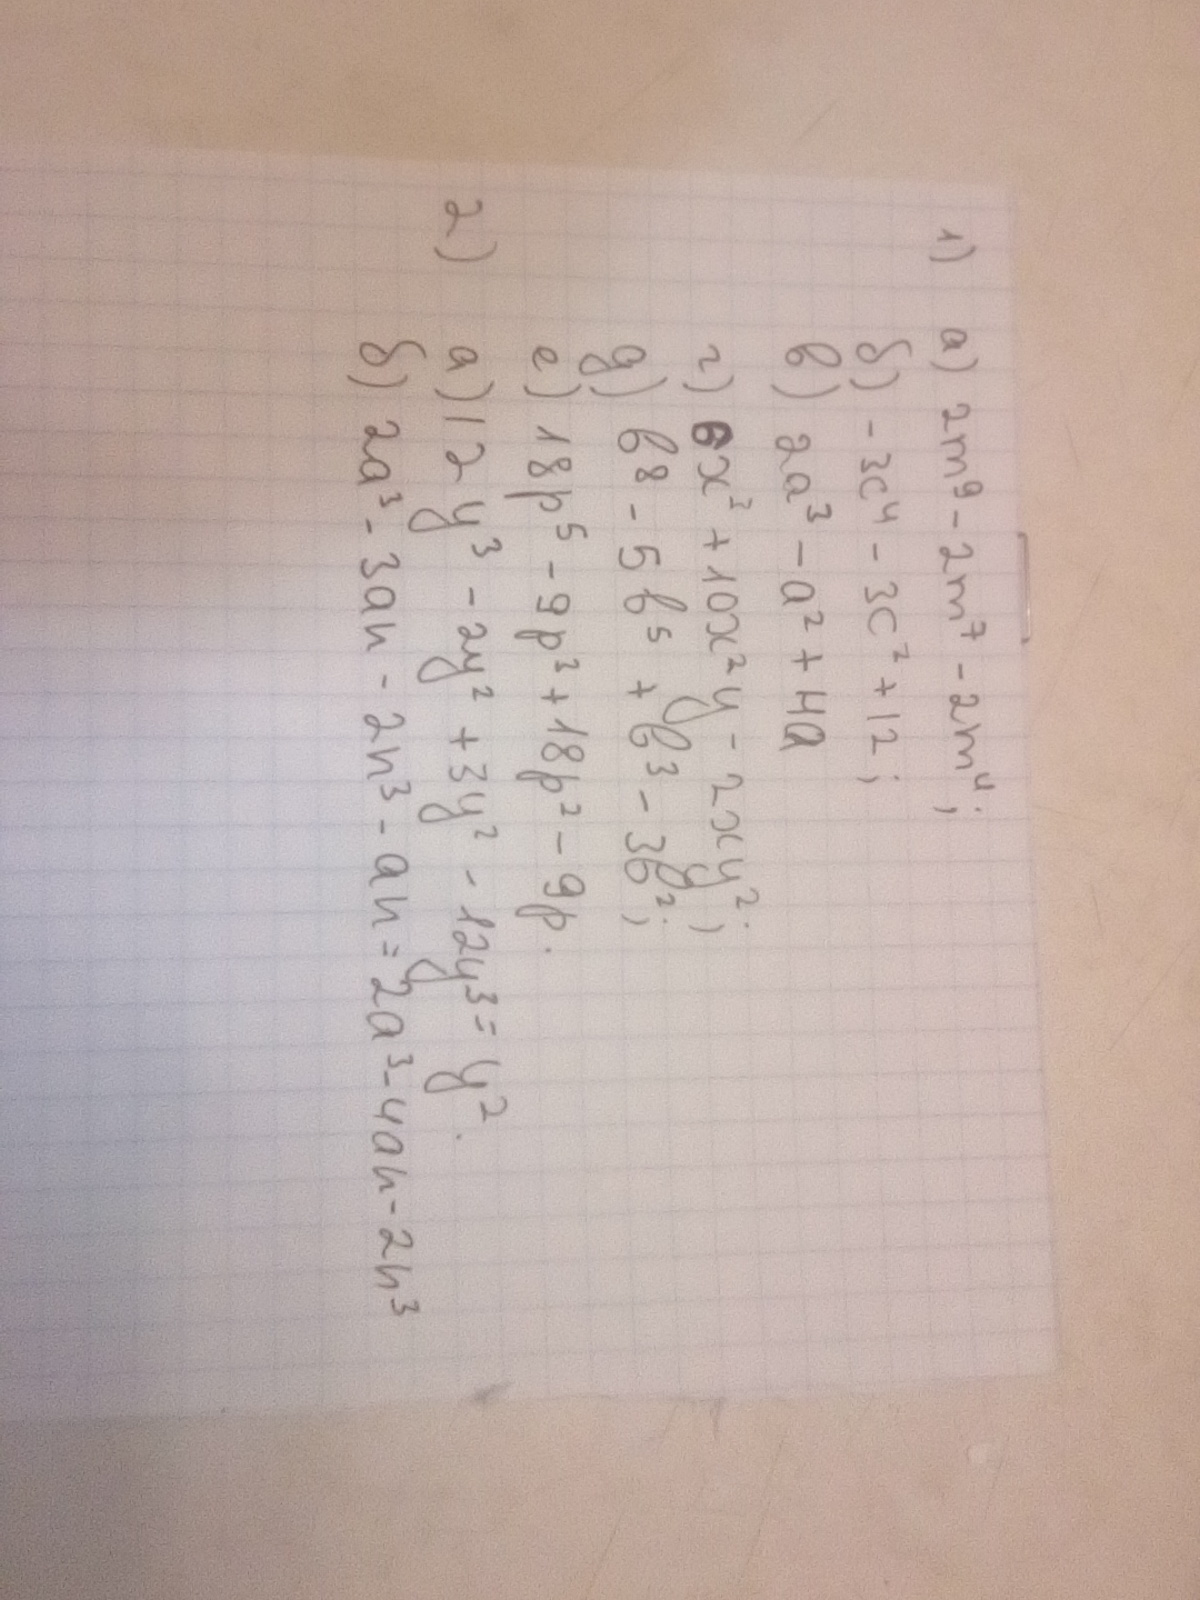 1) а) 2m⁹ - 2m⁷ - 2m⁴;
б) -3c⁴ - 3c² + 12;
в) 2a³ - a² + 4a
г) 6x³ + 10x²y - 2xy²;
д) b⁸ - 5b⁵ + b³ - 3b²;
е) 18p⁵ - 9p³ + 18p² - 9p.
2) а) 12y³ - 2y² + 3y² - 12y³ = y².
б) 2a³ - 3an - 2n³ - an = 2a³ - 4an - 2n³